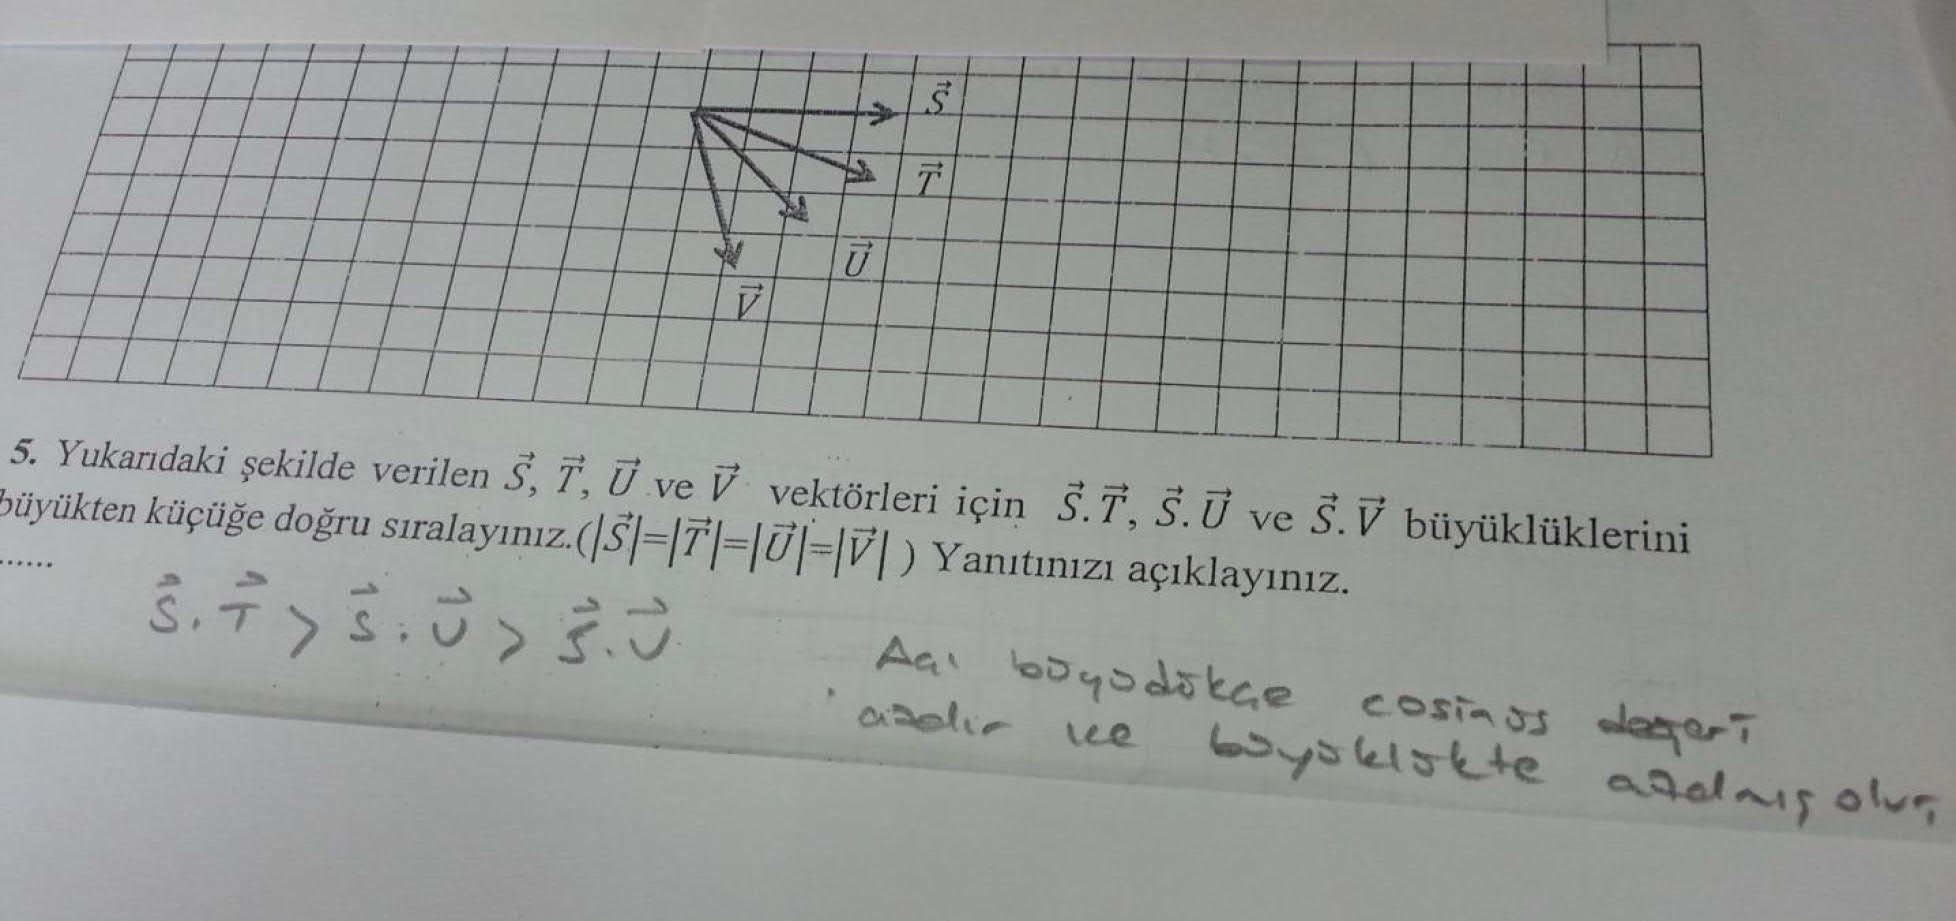 S⃗
T⃗
U⃗
V⃗
5. Yukarıdaki şekilde verilen S⃗, T⃗, U⃗ ve V⃗ vektörleri için S⃗.T⃗, S⃗.U⃗ ve S⃗.V⃗ büyüklüklerini
büyükten küçüğe doğru sıralayınız.(|S⃗|=|T⃗|=|U⃗|=|V⃗|) Yanıtınızı açıklayınız.
......
S⃗.T⃗ > S⃗.U⃗ > S⃗.V⃗
Açı büyüdükçe cosinüs değeri
azalır ve büyüklükte azalmış olur.